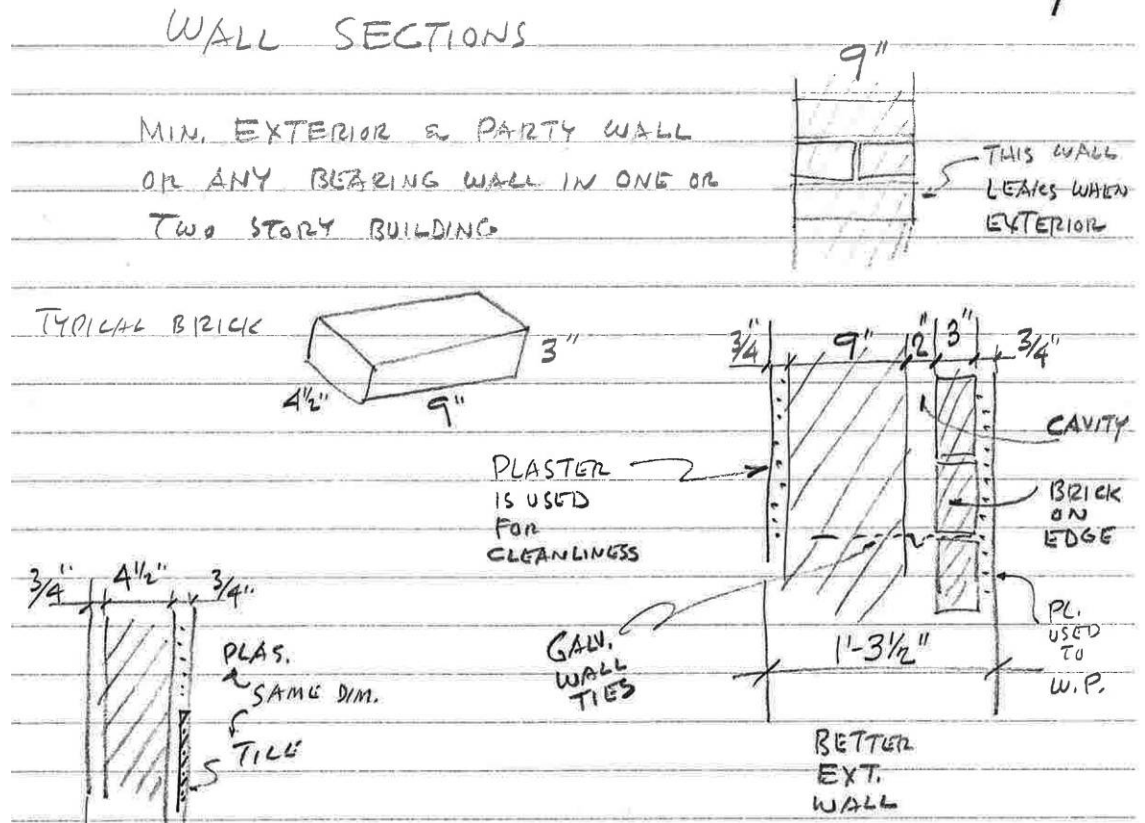 WALL SECTIONS
9"
MIN. EXTERIOR & PARTY WALL
OR ANY BEARING WALL IN ONE OR
TWO STORY BUILDING
THIS WALL
LEAKS WHEN
EXTERIOR
TYPICAL BRICK
3"
4½"
9"
3/4"
9"
2"
3"
3/4"
CAVITY
BRICK
ON
EDGE
PLASTER
IS USED
FOR
CLEANLINESS
GALV.
WALL
TIES
PL.
USED
TO
W.P.
1'-3½"
BETTER
EXT.
WALL
3/4"
4½"
3/4"
PLAS.
SAME DIM.
TILE